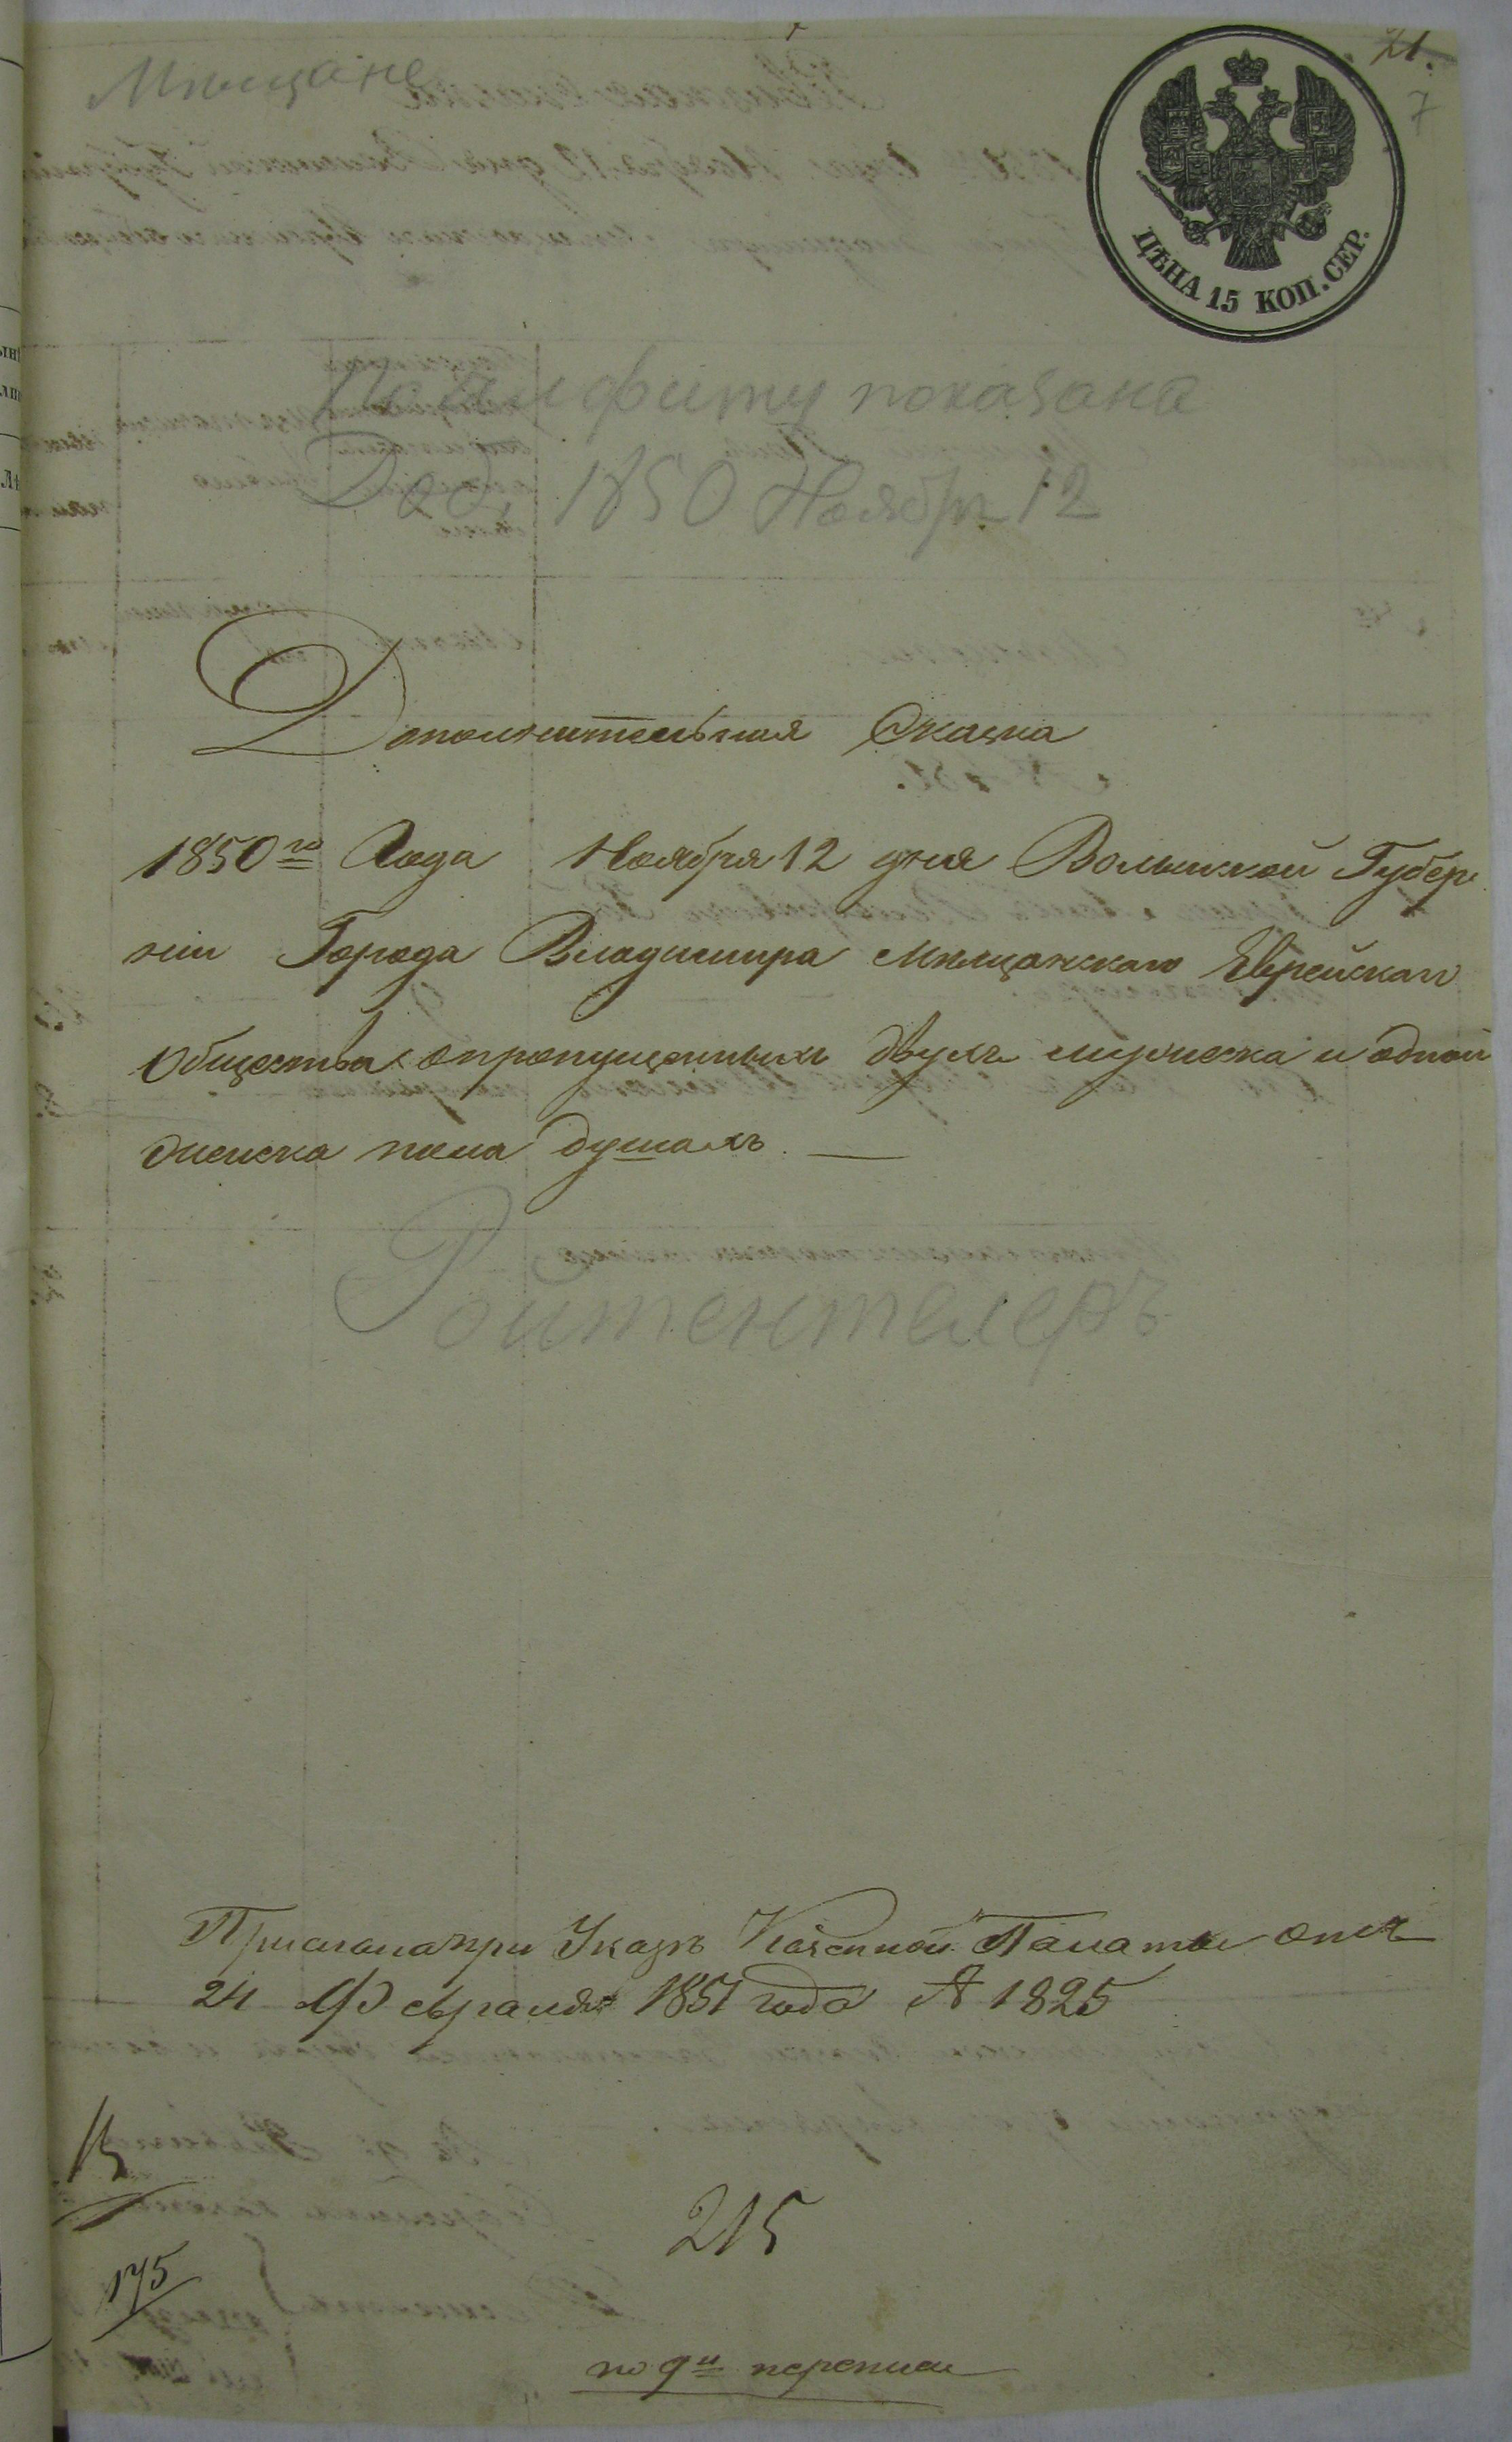 Мѣщане
21.
7
ЦѢНА 15 КОП. СЕР.
По алфиту показана
Доб. 1850 Ноября 12
Дополнительная Сказка
1850го Года Ноября 12 дня Волынской Губер
нии Города Владимира Мѣщанскаго Еврейскаго
Общества о пропущенныхъ двухъ мужеска и одной
женска пола душахъ. —
Ройтенталеръ
Прислана при Указѣ Казенной Палаты отъ
24 Февраля 1851 года № 1825
15
175
215
по 9й переписи